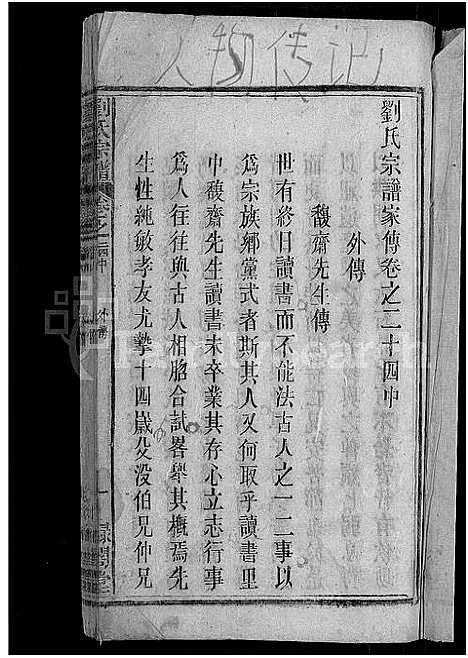 人物传记
劉氏宗譜家傳卷之二十四中
外傳
馥齋先生傳
世有終日讀書而不能法古人之一二事以
爲宗族鄉黨式者斯其人又何取乎讀書里
中馥齋先生讀書未卒業其存心立志行事
爲人往往與古人相脗合試畧舉其概焉先
生性純敏孝友尤摯十四歲父没伯兄仲兄
劉氏宗譜
卷之二十四中
外傳
一